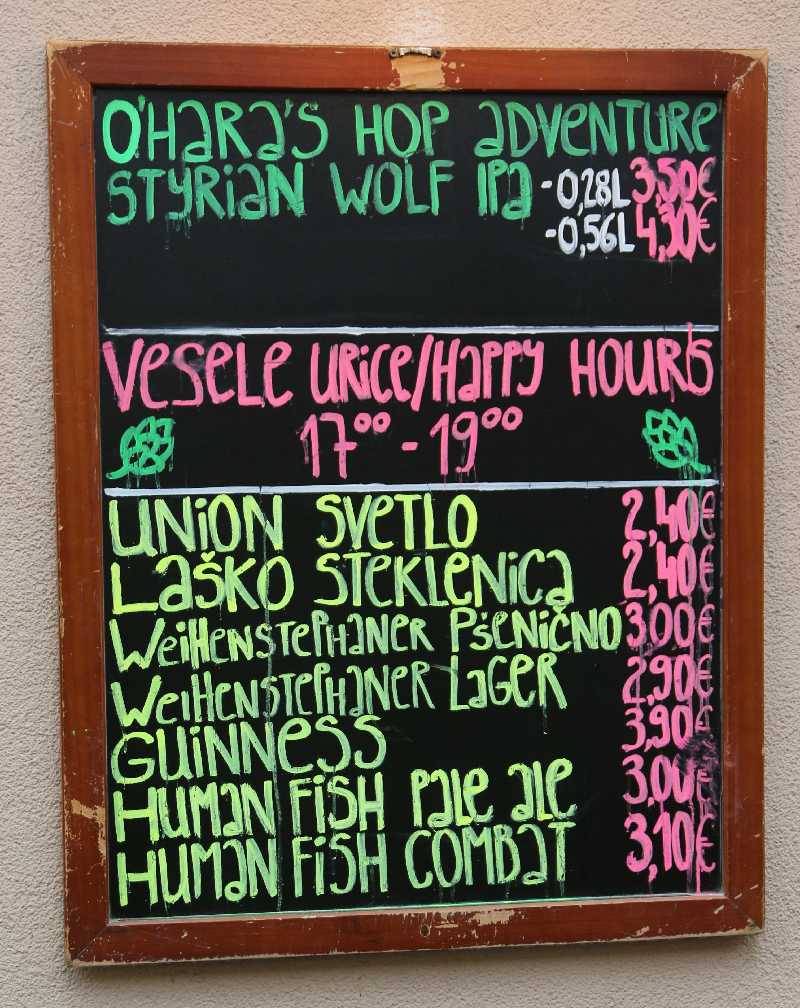 O'HARA'S HOP ADVENTURE
STYRIAN WOLF IPA -0,28L 3,50€
-0,56L 4,30€
VESELE URICE/HAPPY HOUR'S
17⁰⁰ - 19⁰⁰
UNION SVETLO 2,40€
LAŠKO STEKLENICA 2,40€
WEIHENSTEPHANER PŠENIČNO 3,00€
WEIHENSTEPHANER LAGER 2,90€
GUINNESS 3,90€
HUMAN FISH PALE ALE 3,00€
HUMAN FISH COMBAT 3,10€